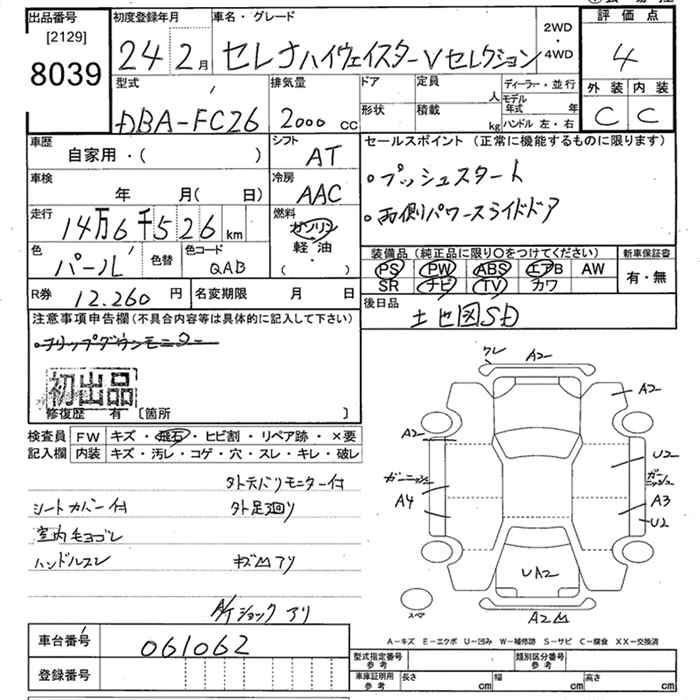 出品番号
[2129]
8039
初度登録年月
24年2月
車名・グレード
セレナハイウェイスターVセレクション
2WD
・
4WD
評価点
4
外装 内装
C C
型式
DBA-FC26
排気量
2000 cc
ドア
形状
定員 人
積載 kg
ディーラー・並行
モデル年式 年
ハンドル 左・右
車歴
自家用・( )
シフト
AT
セールスポイント (正常に機能するものに限ります)
・プッシュスタート
・両側パワースライドドア
車検
年 月( 日)
冷房
AAC
走行
14万6千526 km
燃料
ガソリン
軽油
( )
色
パール
色替
色コード
QAB
装備品 (純正品に限り○をつけてください)
PS PW ABS エアB AW
SR ナビ TV カワ
新車保証書
有・無
R券 12.260 円
名変期限 月 日
後日品
土セ図SD
注意事項申告欄 (不具合内容等は具体的に記入して下さい)
・フリップダウンモニター
初出品
修復歴 有 〔箇所 〕
検査員記入欄
FW キズ・飛石・ヒビ割・リペア跡・×要
内装 キズ・汚レ・コゲ・穴・スレ・キレ・破レ
外テバリモニター付
シートカバー付 外足廻り
室内毛ヨゴレ
ハンドルスレ キズ凹アリ
A/Tショックアリ
ワレ A2
A2
A2
U2
ガーニッシュ
ガーニッシュ
A4
A3
U2
UA2
スペア
A2凹
A-キズ E-エクボ U-凹み W-補修跡 S-サビ C-腐食 XX-交換済
車台番号 061062
登録番号
型式指定番号 参考
類別区分番号 参考
車庫証明用 参考 長さ cm 幅 cm 高さ cm